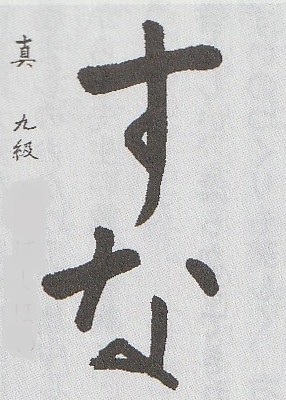 すな
真 九級